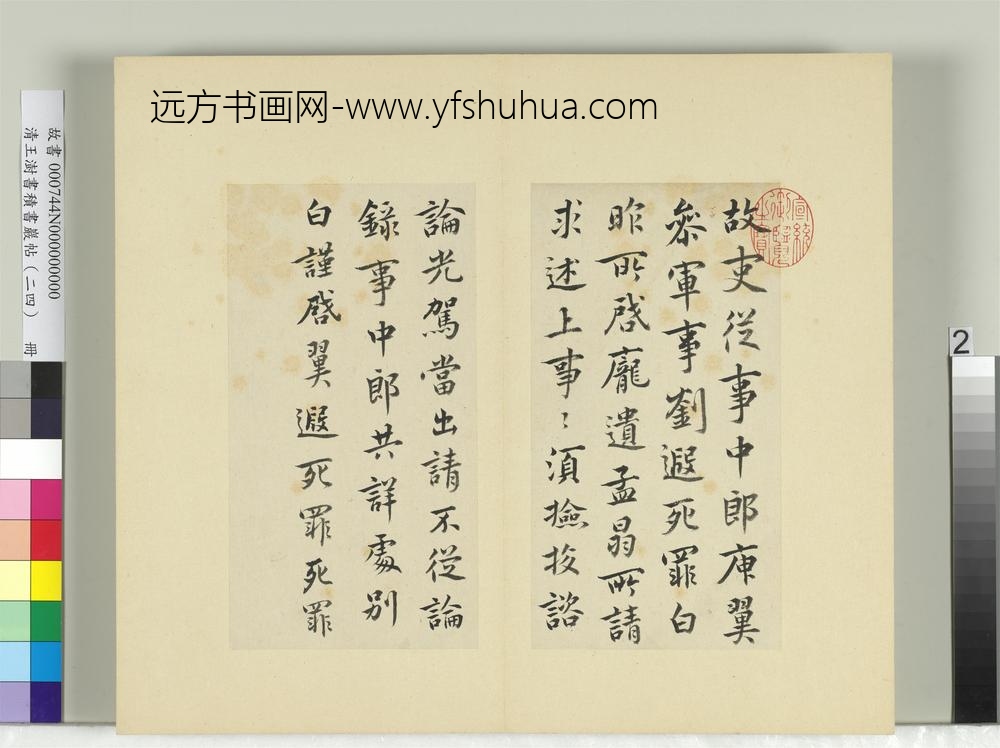 远方书画网-www.yfshuhua.com
故吏從事中郎庾翼
參軍事劉遐死罪白
昨所啓龐遺孟昌所請
求述上事〻須撿挍諮
論光駕當出請不從論
錄事中郎共詳處別
白謹啓翼遐死罪死罪
宣統御覽之寶
故書 000744N000000000
清王澍書積書巖帖(二四) 冊
2